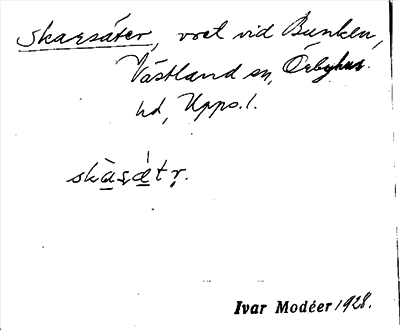 Skarsäter, vret vid Bunken,
Västland sn, Örbyhus
hd, Upps. l.
skàṣǽtr̥.
Ivar Modéer 1928.